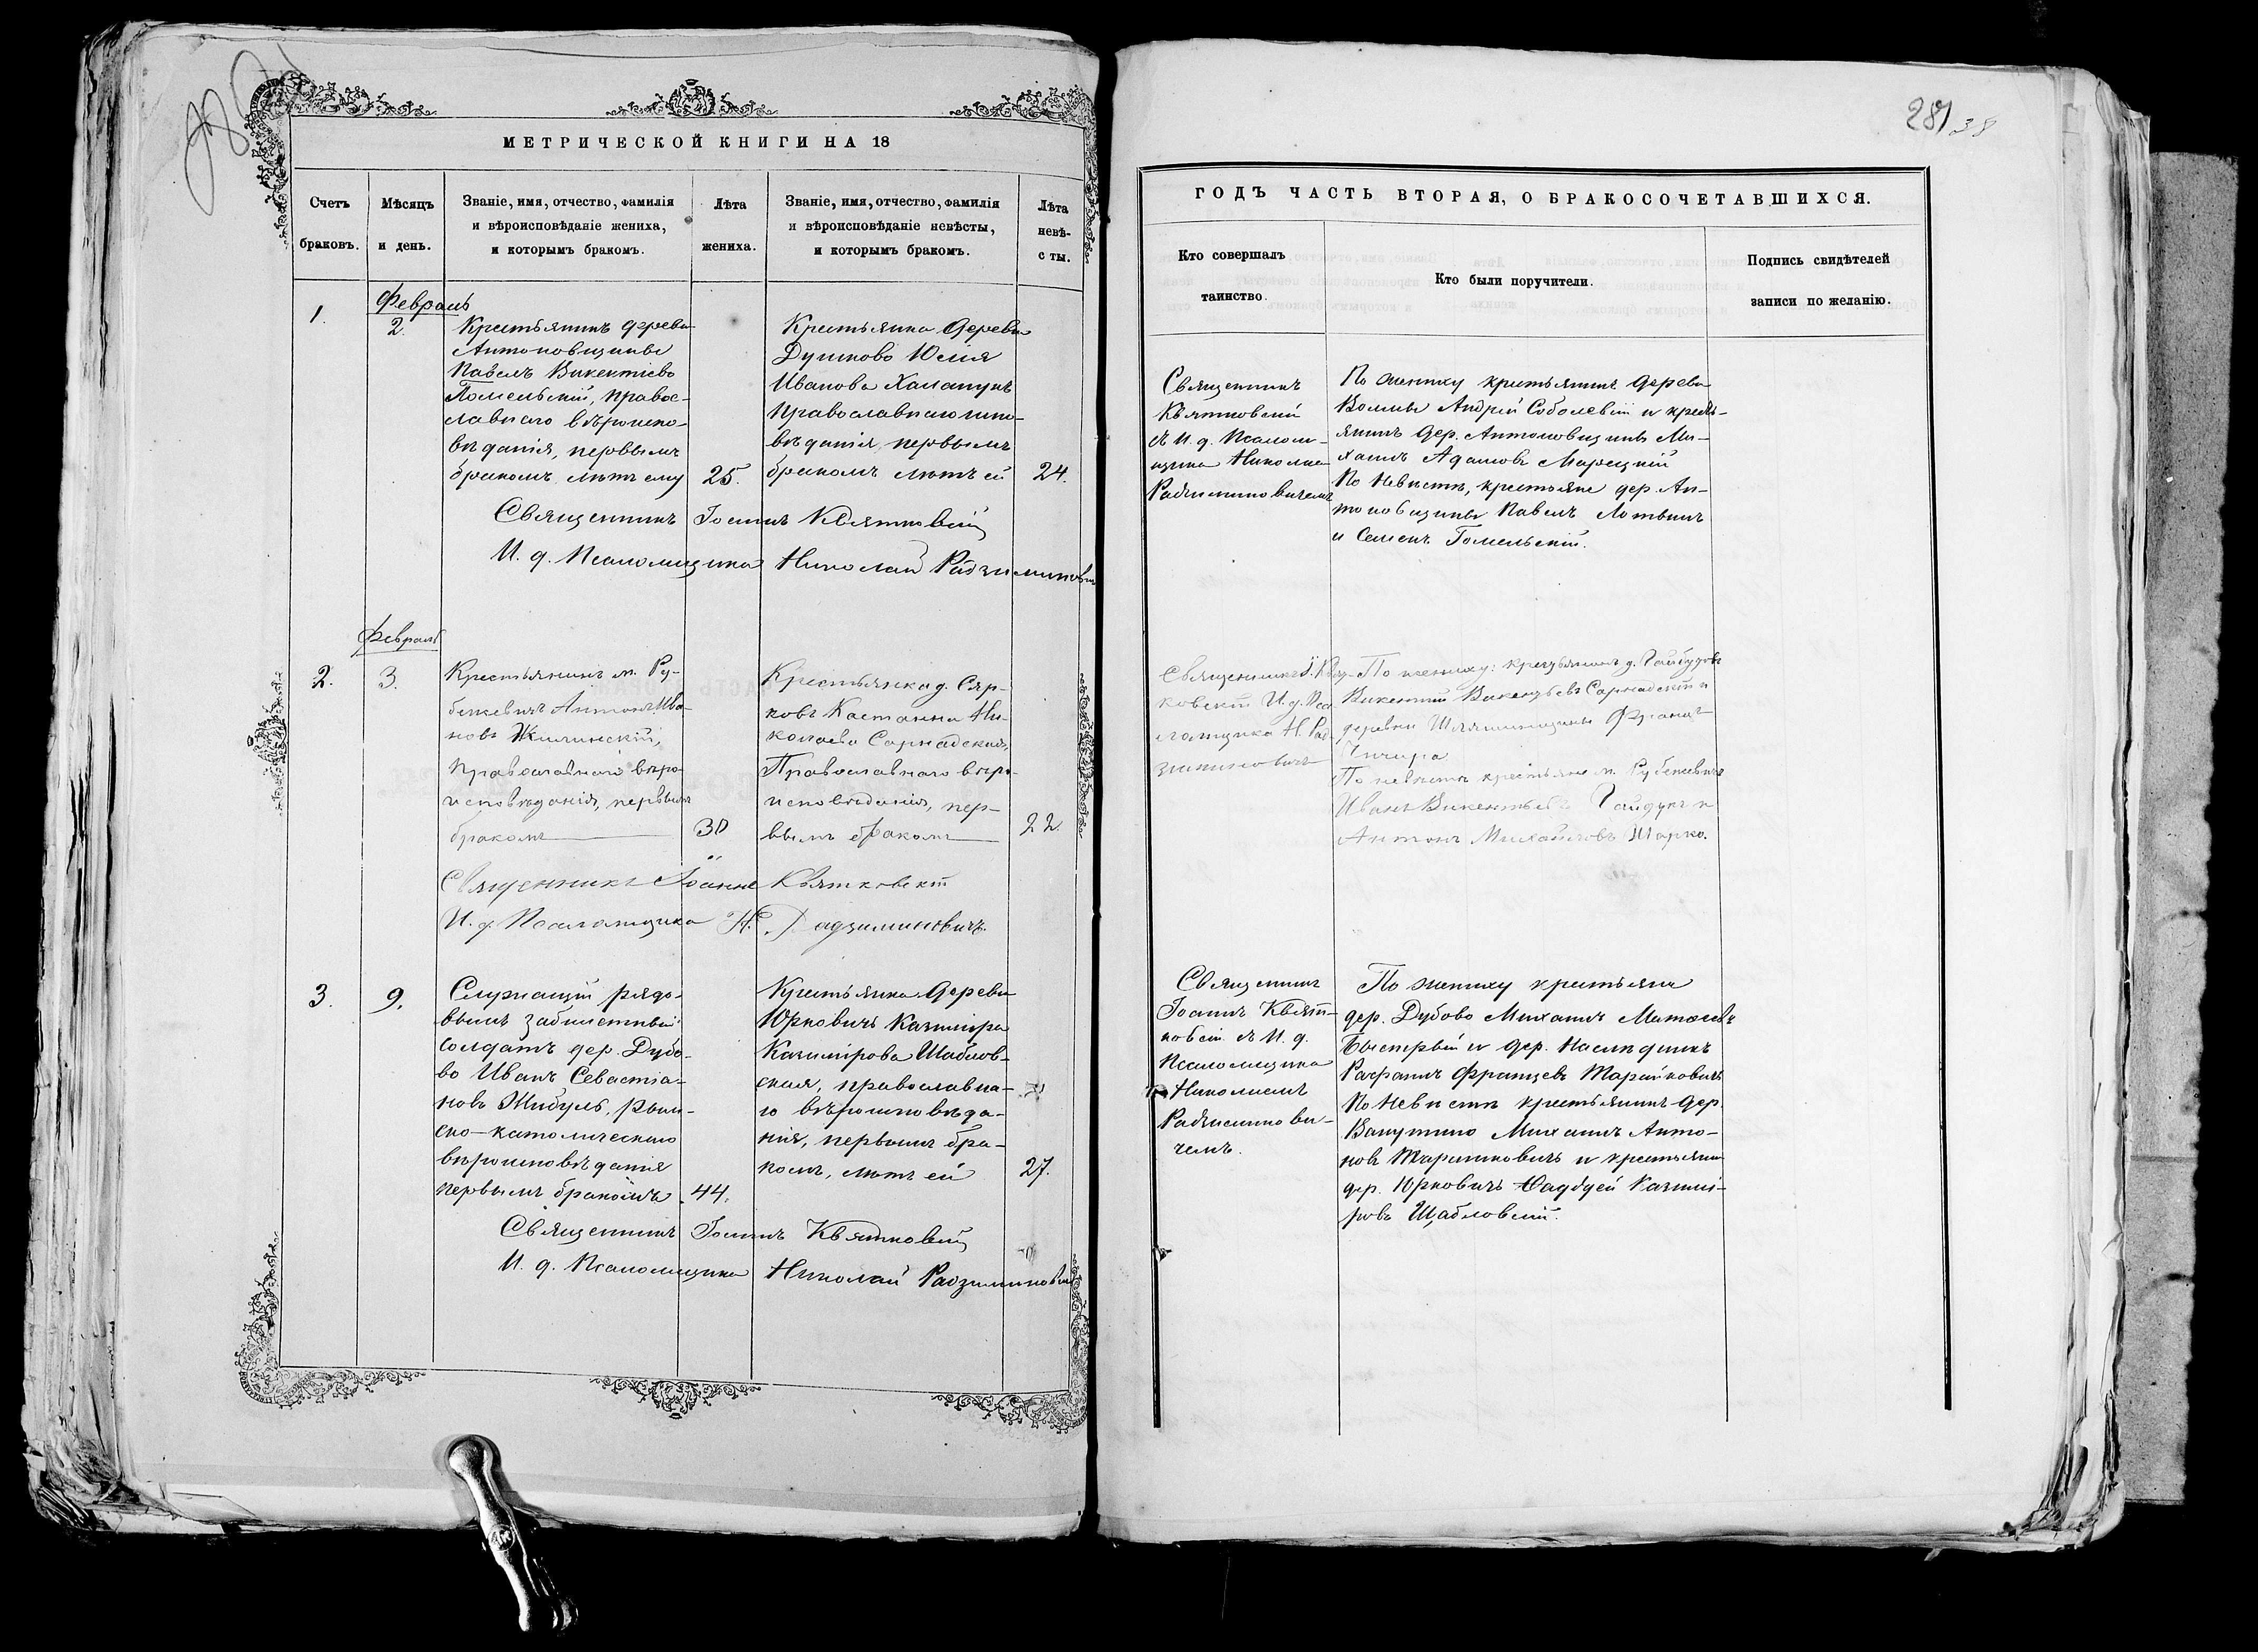 МЕТРИЧЕСКОЙ КНИГИ НА 18
Счетъ браковъ.
Мѣсяцъ и день.
Званіе, имя, отчество, фамилія
и вѣроисповѣданіе жениха,
и которымъ бракомъ.
Лѣта жениха.
Званіе, имя, отчество, фамилія
и вѣроисповѣданіе невѣсты,
и которымъ бракомъ.
Лѣта
невѣ-
сты.
1.
Февраль
2.
Крестьянинъ деревни
Антоновщины
Павелъ Викентіевъ
Гомельскій, правос-
лавнаго вѣроиспо-
вѣданія, первымъ
бракомъ, лѣтъ ему
25.
Крестьянка деревни
Душково Юлія
Иванова
православнаго испо-
вѣданія, первымъ
бракомъ лѣтъ ей
24.
Священникъ Іоаннъ Квятковскій
И. д. Псаломщика Николай Радзиминовичъ
Февраль
2.
3.
Крестьянинъ м. Ру-
беневичъ Антонъ Ива-
новъ Жилинскій,
Православнаго вѣро-
исповѣданія, первымъ
бракомъ
30
Крестьянка д. Сяр-
ковъ Ни-
колаева Сарнадская,
Православнаго вѣро-
исповѣданія, пер-
вымъ бракомъ
22
Священникъ Іоаннъ Квятковскій
И. д. Псаломщика Н. Радзиминовичъ.
3.
9.
Служащій рядо-
вымъ забилетный
солдатъ дер. Дубо-
во Иванъ Севастіа-
новъ Жибуль, рим-
ско-католическаго
вѣроисповѣданія
первымъ бракомъ
44.
Крестьянка деревни
Юрковичъ Казиміра
Казимірова Шаблов-
ская, православна-
го вѣроисповѣда-
нія, первымъ бра-
комъ, лѣтъ ей
27.
Священникъ Іоаннъ Квятковскій
И. д. Псаломщика Николай Радзиминовичъ
281 38
ГОДЪ ЧАСТЬ ВТОРАЯ, О БРАКОСОЧЕТАВШИХСЯ.
Кто совершалъ
таинство.
Кто были поручители.
Подпись свидѣтелей
записи по желанію.
Священникъ
Квятковскій
съ И. д. Псалом-
щика Николаемъ
Радзиминовичемъ
По жениху крестьянинъ деревни
Андрей Соболевскій и кресть-
янинъ дер. Антоновщины Ми-
хаилъ Адамовъ Марецкій
По Невѣстѣ, крестьяне дер. Ан-
тоновщины Павелъ
и Семенъ Гомельскій.
Священникъ І. Квят-
ковскій И. д. Пса-
ломщика Н. Рад-
зиминовичъ
По жениху: крестьянинъ д.
Викентій Викентьевъ Сарнадскій и
деревни Францъ
По невѣстѣ крестьяне м. Рубеневичъ
Иванъ Викентьевъ Гайдукъ и
Антонъ Михайловъ Шарко.
Священникъ
Іоаннъ Квят-
ковскій съ И. д.
Псаломщика
Николаемъ
Радзиминови-
чемъ.
По жениху крестьяне
дер. Дубово Михаилъ
Быстрый и дер. Наслѣдникъ
Рафаилъ Францевъ
По Невѣстѣ крестьянинъ дер.
Михаилъ Анто-
новъ и крестьянинъ
дер. Юрковичъ Фаддей Казимі-
ровъ Шабловскій.